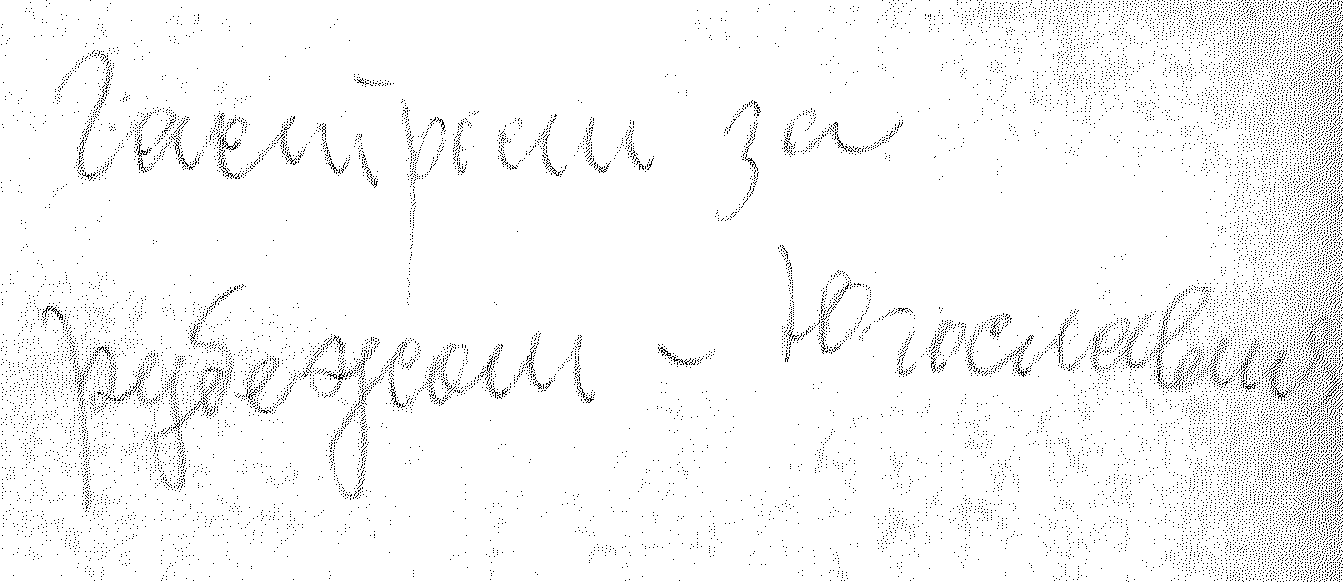 Гастроли за
рубежом - Югослави